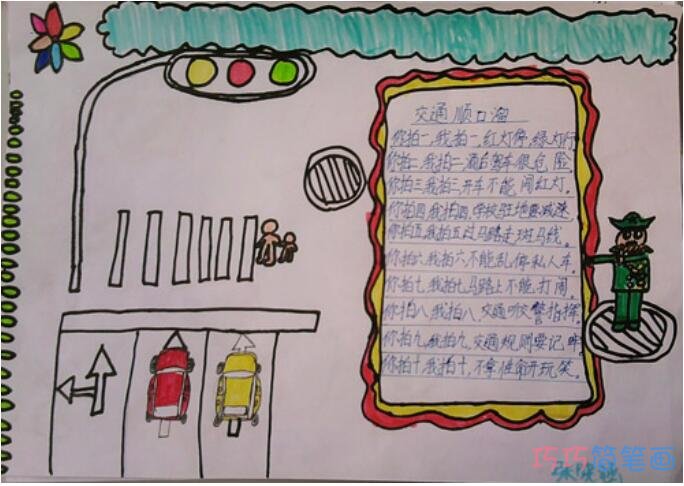 交通顺口溜
你拍一,我拍一,红灯停,绿灯行
你拍二,我拍二,酒后驾车很危险。
你拍三,我拍三,开车不能闯红灯。
你拍四,我拍四,学校驻地要减速
你拍五,我拍五,过马路走斑马线。
你拍六,我拍六,不能乱停私人车。
你拍七,我拍七,马路上不能打闹。
你拍八,我拍八,交通听交警指挥。
你拍九,我拍九,交通规则要记牢。
你拍十,我拍十,不拿性命开玩笑。
巧巧简笔画